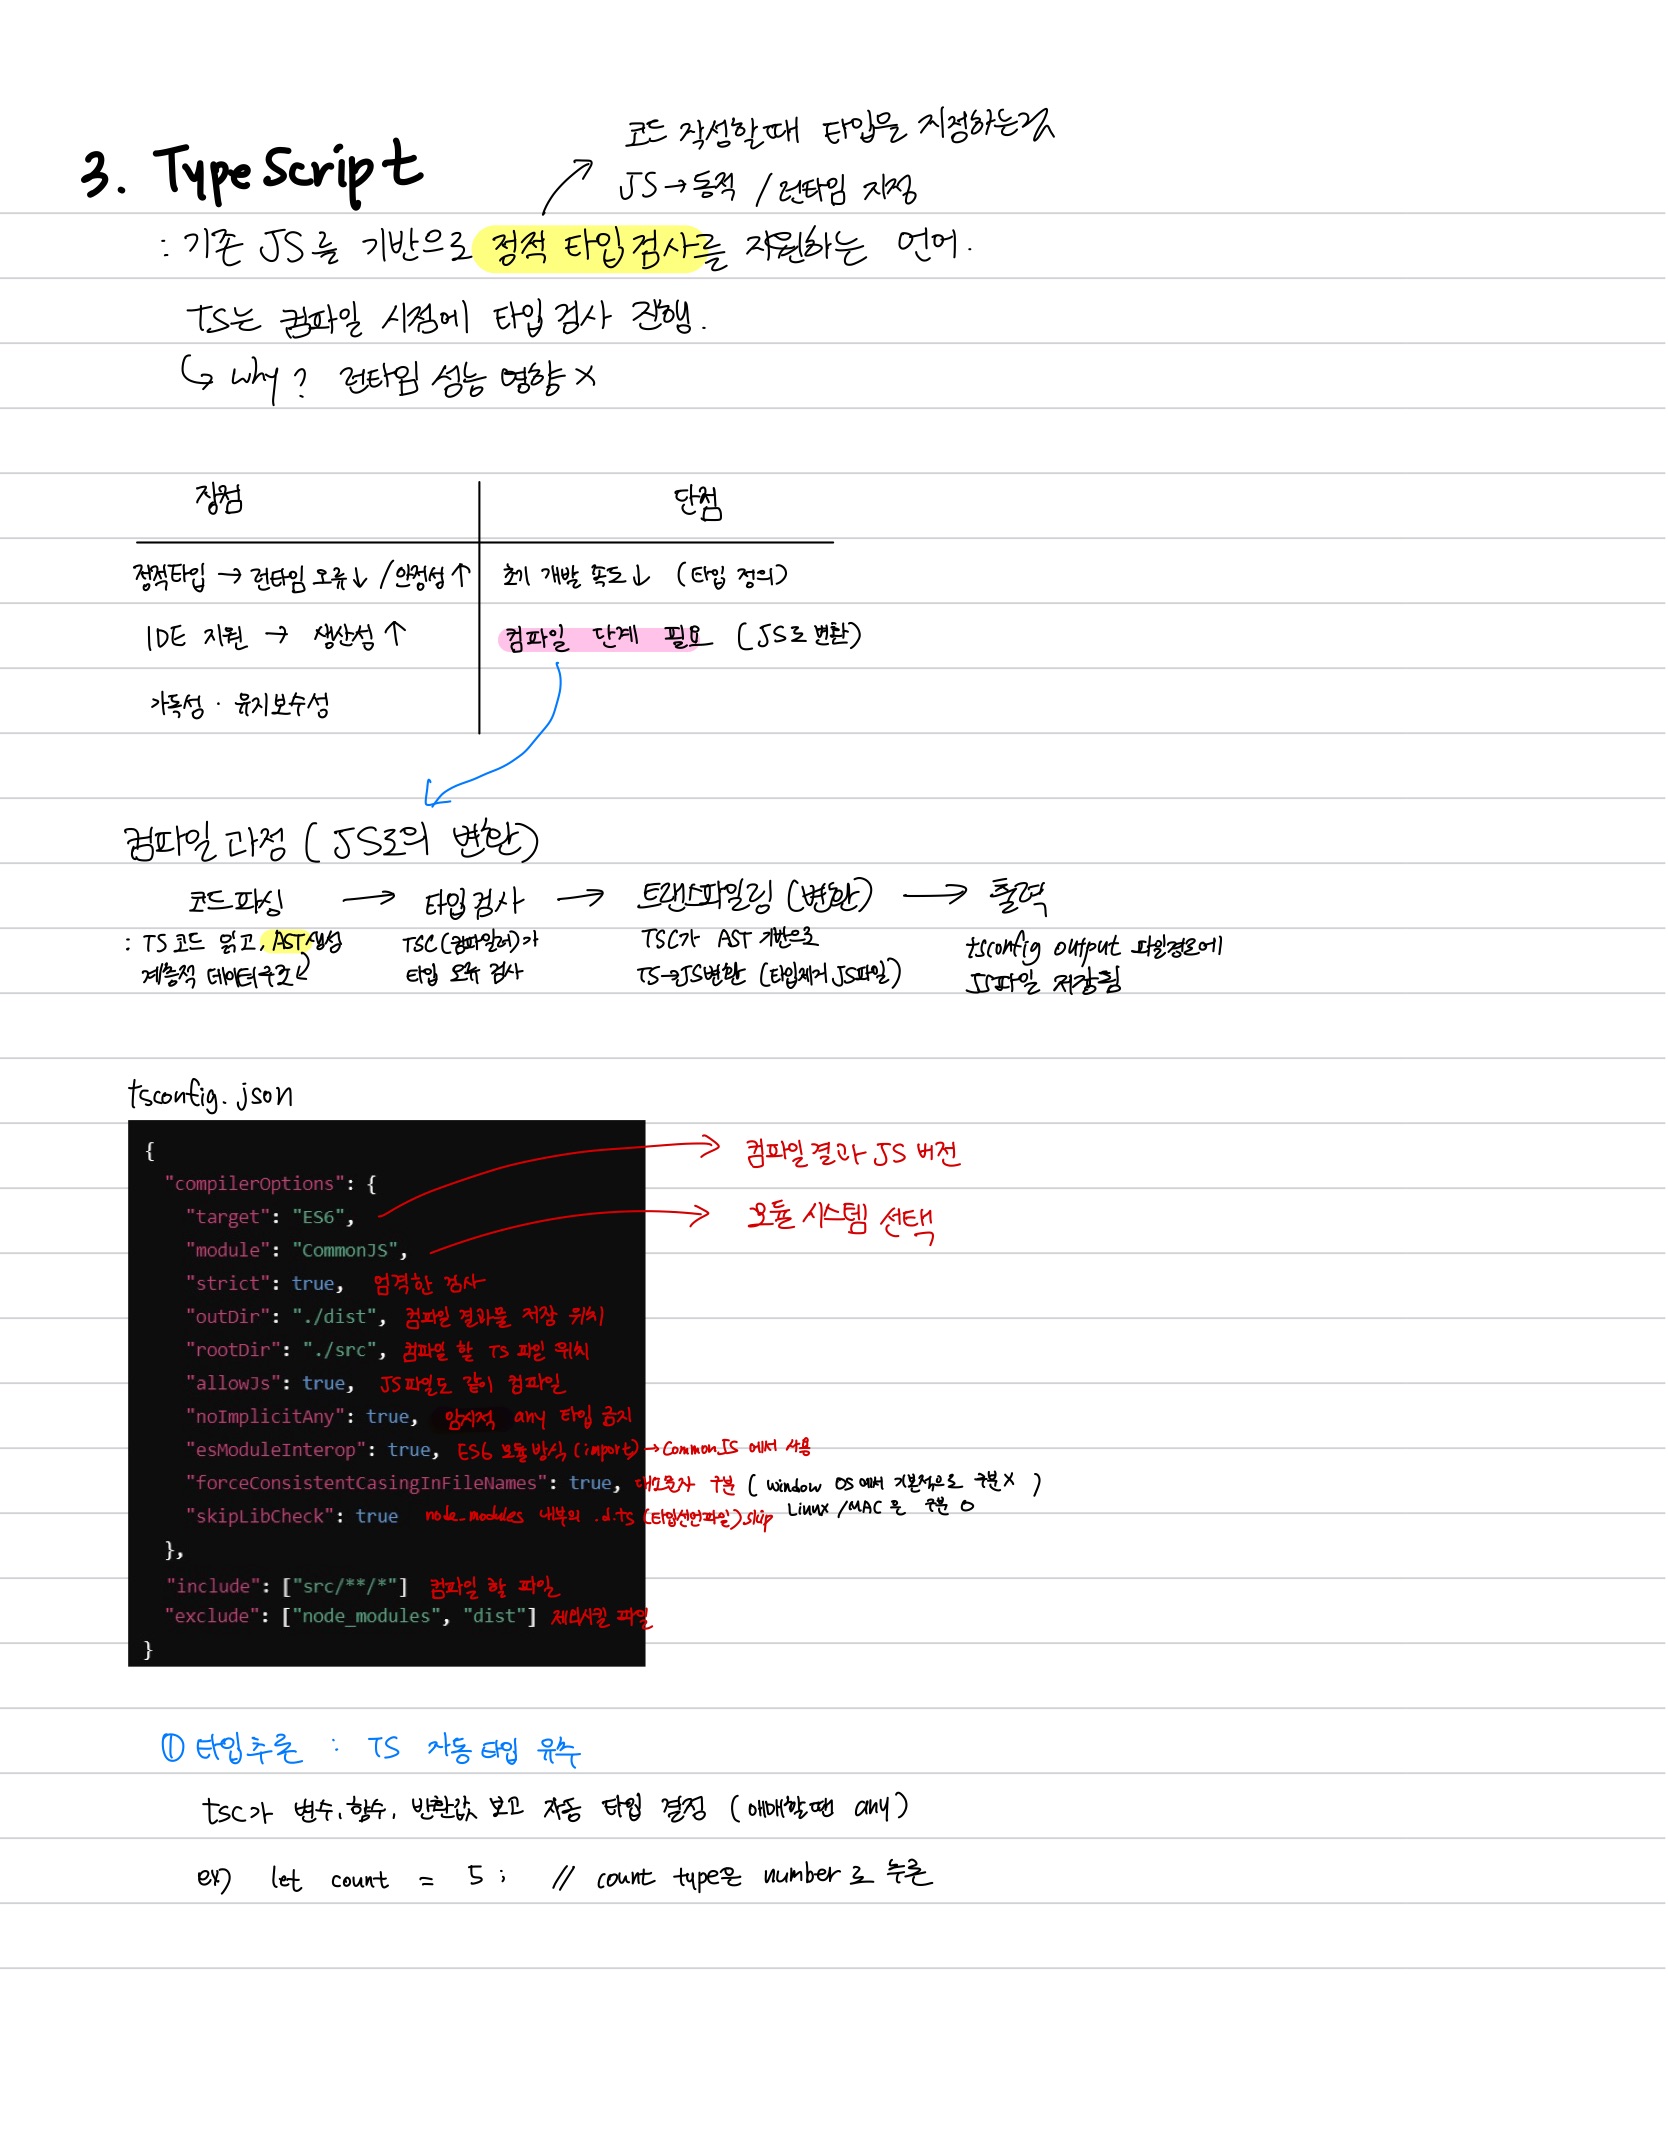 코드 작성할때 타입을 지정하는것
3. TypeScript
JS→동적 / 런타임 지정
: 기존 JS를 기반으로 정적 타입검사를 지원하는 언어.
TS는 컴파일 시점에 타입 검사 진행.
↳ why? 런타임 성능 영향 X
장점 단점
정적타입 → 런타임 오류↓ / 안정성↑ 초기 개발 속도↓ (타입 정의)
IDE 지원 → 생산성↑ 컴파일 단계 필요 (JS로 변환)
가독성 · 유지보수성
컴파일 과정 (JS로의 변환)
코드파싱 → 타입검사 → 트랜스파일링 (변환) → 출력
: TS코드 읽고, AST생성 TSC(컴파일러)가 TSC가 AST 기반으로 tsconfig output 파일경로에
계층적 데이터구조 타입 오류 검사 TS→JS변환 (타입제거 JS파일) JS파일 저장됨
tsconfig.json
{ 컴파일결과 JS 버전
"compilerOptions": {
"target": "ES6", 모듈 시스템 선택
"module": "CommonJS",
"strict": true, 엄격한 검사
"outDir": "./dist", 컴파일 결과물 저장 위치
"rootDir": "./src", 컴파일 할 TS 파일 위치
"allowJs": true, JS파일도 같이 컴파일
"noImplicitAny": true, 암시적 any 타입 금지
"esModuleInterop": true, ES6 모듈방식 (import) → CommonJS 에서 사용
"forceConsistentCasingInFileNames": true, 대소문자 구분 ( window OS에서 기본적으로 구분X )
Linux / MAC 은 구분 O
"skipLibCheck": true node_modules 내부의 .d.ts (타입선언파일) skip
},
"include": ["src/**/*"] 컴파일 할 파일
"exclude": ["node_modules", "dist"] 제외시킬 파일
}
① 타입추론 : TS 자동 타입 유추
tsc가 변수, 함수, 반환값 보고 자동 타입 결정 (애매할땐 any)
ex) let count = 5 ; // count type은 number로 추론